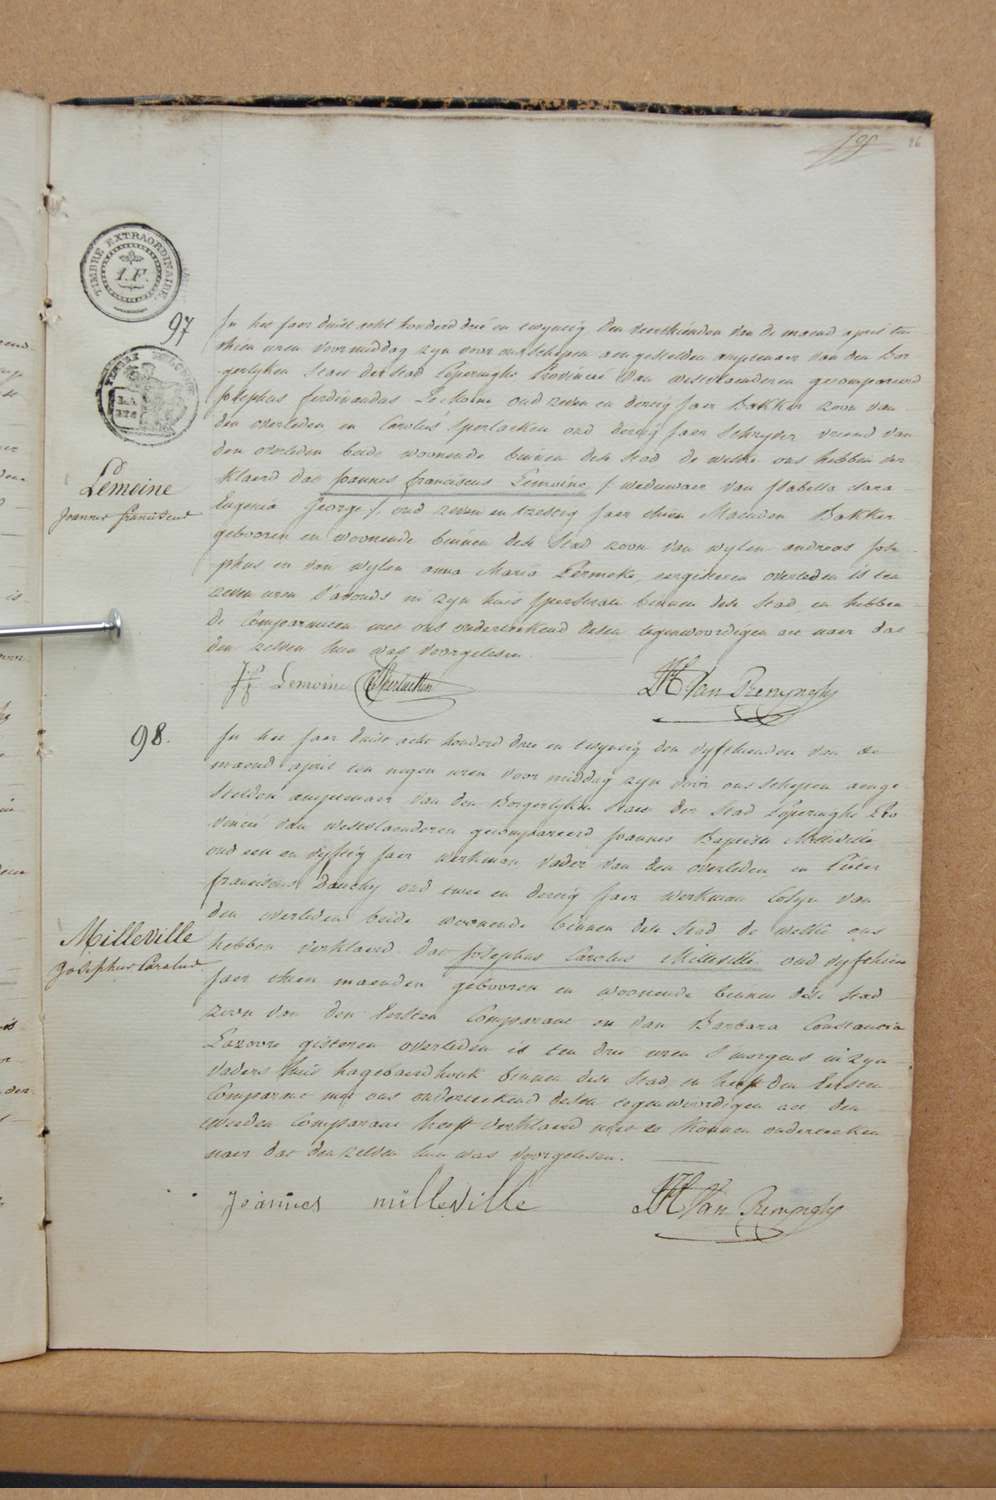 26
TIMBRE EXTRAORDINAIRE
1.F.
97
In het jaer duist acht honderd drie en twyntig den veerthienden van de maend april ten
thien uren voormiddag zyn voor ons schepen aengestelden amptenaer van den Bor
gerlyken staet der stad Poperinghe Provincie van westvlaenderen gecompareerd
Josephus ferdinandus Lemoine oud zeven en dertig jaer Bakker zoon van
den overleden en Carolus Sperlaeken oud dertig jaer Schryver vriend van
den overleden beide woonende binnen dese stad de welke ons hebben ver
klaerd dat Joannes franciscus Lemoine / weduwaer van Isabella clara
Eugenia George /, oud zeven en tzestig jaer thien Maenden Bakker
gebooren en woonende binnen dese stad zoon van wylen andreas Jose
phus en van wylen anna Maria Permeke eergisteren overleden is ten
zeven uren s'avonds in zyn huis binnen dese stad, en hebben
de Comparanten met ons onderteekend desen tegenwoordigen act naer dat
den zelven hun was voorgelesen.
Lemoine
Joannes franciscus
Jf Lemoine C Sperlaeken
Van Renynghe
98.
In het jaer duist acht honderd drie en twyntig den vyfthienden van de
maend april ten negen uren voormiddag zyn voor ons schepen aenge
stelden amptenaer van den Borgerlyken staet der stad Poperinghe Pro
vincie van westvlaenderen gecompareerd Joannes Baptista Milleville
oud een en vyftig jaer werkman, vader van den overleden en Pieter
franciscus Dauchy oud twee en dertig jaer werkman Cosyn van
den overleden beide woonende binnen dese stad de welke ons
hebben verklaerd dat Josephus Carolus Milleville oud vyfthien
jaer thien maenden gebooren en woonende binnen dese stad
zoon van den Eersten Comparant en van Barbara Constancia
gisteren overleden is ten drie uren s'morgens in zyn
vaders huis binnen dese stad en heeft den Eersten
Comparant met ons onderteekend desen tegenwoordigen act den
tweeden Comparant heeft verklaerd niet te konnen onderteeken
naer dat den zelven hun was voorgelesen.
Milleville
Josephus Carolus
Joannes milleville
Van Renynghe